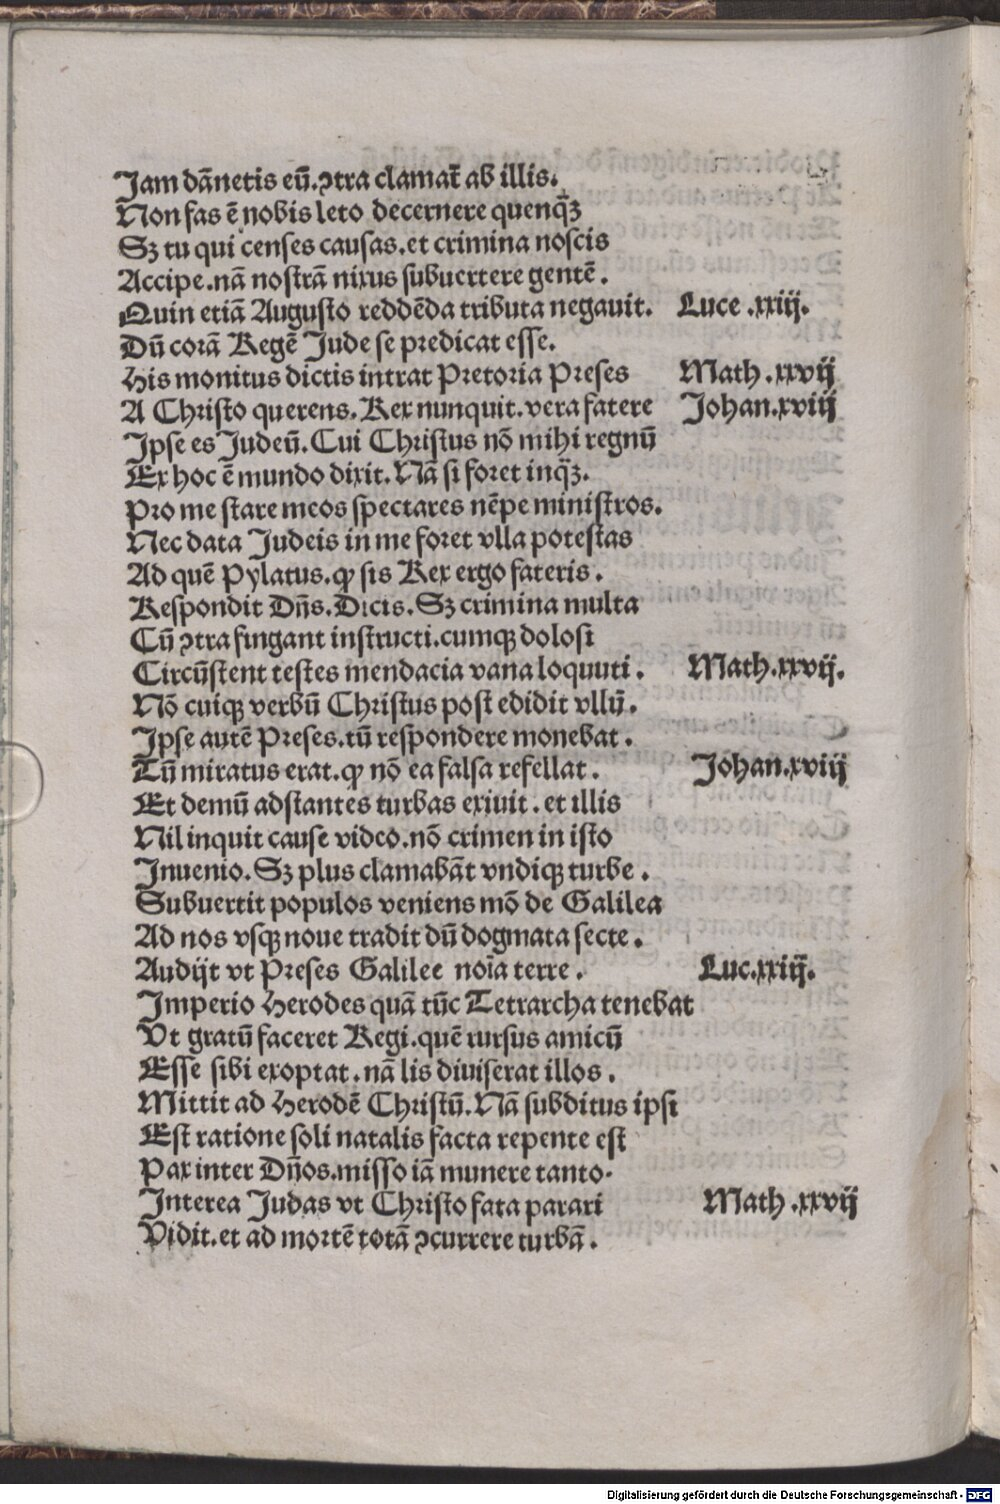 Jam dãnetis eũ.ꝯtra clamat̃ ab illis.
Non fas ẽ nobis leto decernere quenq̃ꝫ
Sꝫ tu qui censes causas.et crimina noscis
Accipe.nã nostrã nixus subuertere gentẽ.
Quin etiã Augusto reddẽda tributa negauit. Luce .xxiij.
Dũ corã Regẽ Jude se predicat esse.
His monitus dictis intrat Pretoria Preses Math.xxvij
A Christo querens.Rex nunquit.vera fatere Johan.xviij
Ipse es Judeũ.Cui Christus nõ mihi regnũ
Ex hoc ẽ mundo dixit.Nã si foret inq̃ꝫ.
Pro me stare meos spectares nẽpe ministros.
Nec data Judeis in me foret vlla potestas
Ad quẽ Pylatus.ꝙ sis Rex ergo fateris.
Respondit Dñs.Dicis.Sꝫ crimina multa
Cũ ꝯtra fingant instructi.cumqꝫ dolosi
Circũstent testes mendacia vana loquuti. Math.xxvij.
Nõ cuiqꝫ verbũ Christus post edidit vllũ.
Ipse autẽ Preses.tũ respondere monebat.
Tũ miratus erat.ꝙ nõ ea falsa refellat. Johan.xviij
Et demũ adstantes turbas exiuit.et illis
Nil inquit cause video.nõ crimen in isto
Inuenio.Sꝫ plus clamabãt vndiqꝫ turbe.
Subuertit populos veniens mõ de Galilea
Ad nos vsqꝫ noue tradit dũ dogmata secte.
Audijt vt Preses Galilee noĩa terre. Luc.xxiij.
Imperio Herodes quã tũc Tetrarcha tenebat
Vt gratũ faceret Regi.quẽ rursus amicũ
Esse sibi exoptat.nã lis diviserat illos.
Mittit ad Herodẽ Christũ.Nã subditus ipsi
Est ratione soli natalis facta repente est
Pax inter Dños.misso iã munere tanto.
Interea Judas vt Christo fata parari Math.xxvij
Vidit.et ad mortẽ totã ꝯcurrere turbã.
Digitalisierung gefördert durch die Deutsche Forschungsgemeinschaft - DFG